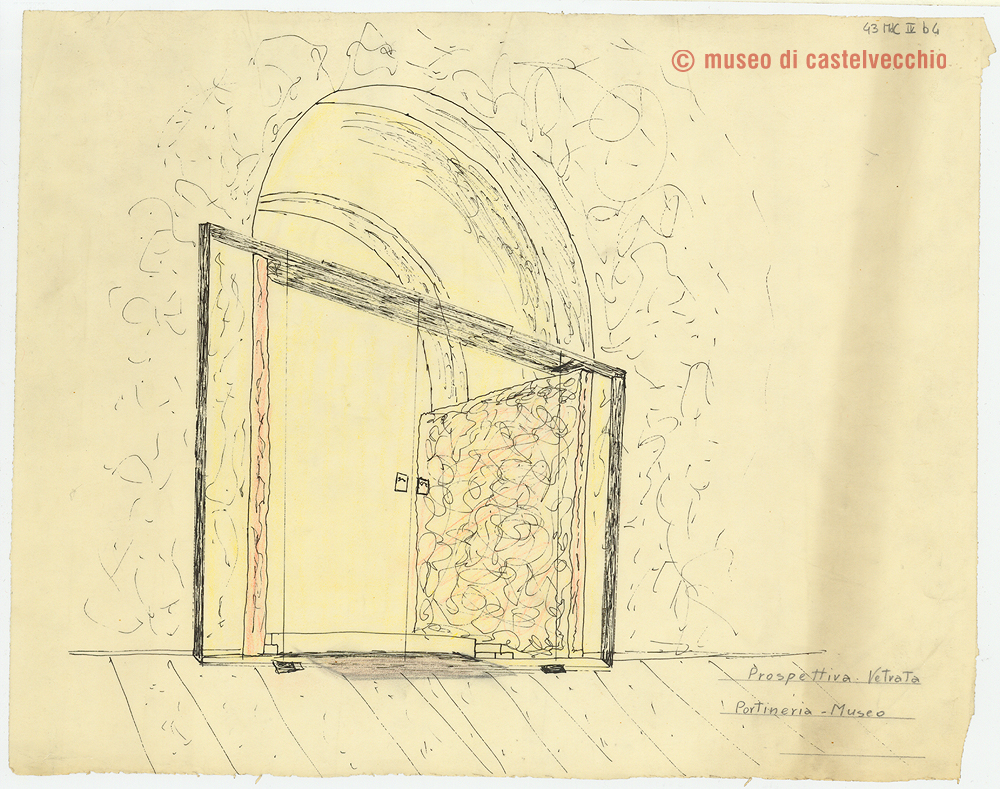 43 MC IV b 4
© museo di castelvecchio
Prospettiva. Vetrata
Portineria - Museo